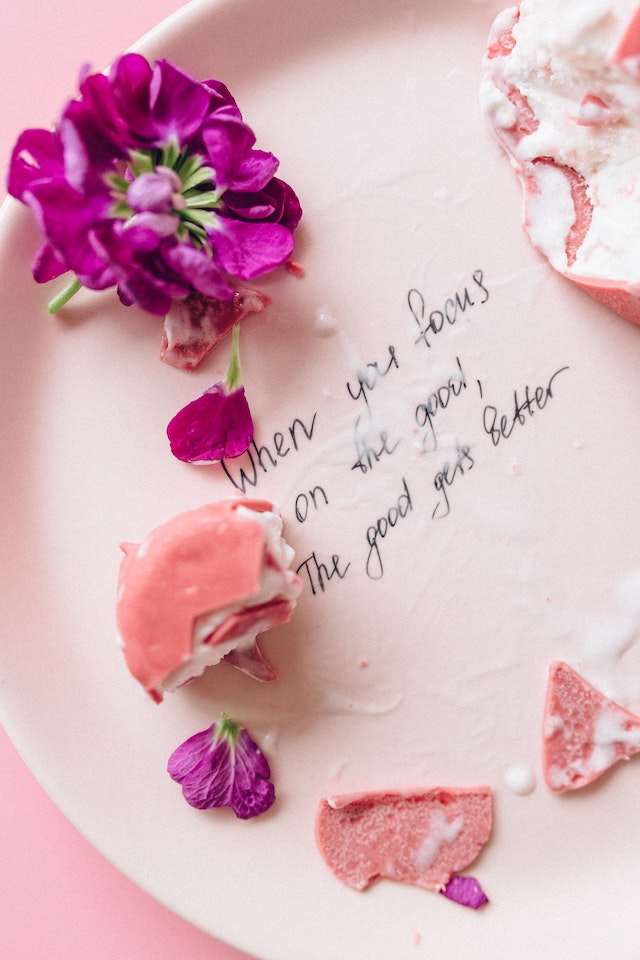 When you focus
on the good,
The good gets better